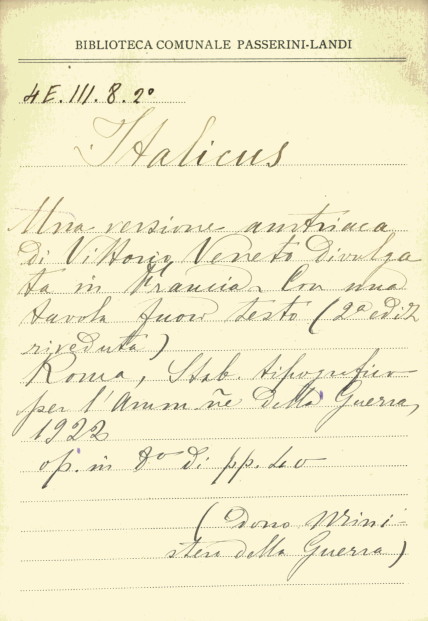 BIBLIOTECA COMUNALE PASSERINI-LANDI
4E.III.8.2º
Italicus
Una versione austriaca
di Vittorio Veneto divulga
ta in Francia. Con una
tavola fuori testo (2ª ediz
riveduta)
Roma, Stab. tipografico
per l'Ammñe della Guerra,
1922
op. in 8º di pp. 40
(dono Mini-
stero della Guerra)